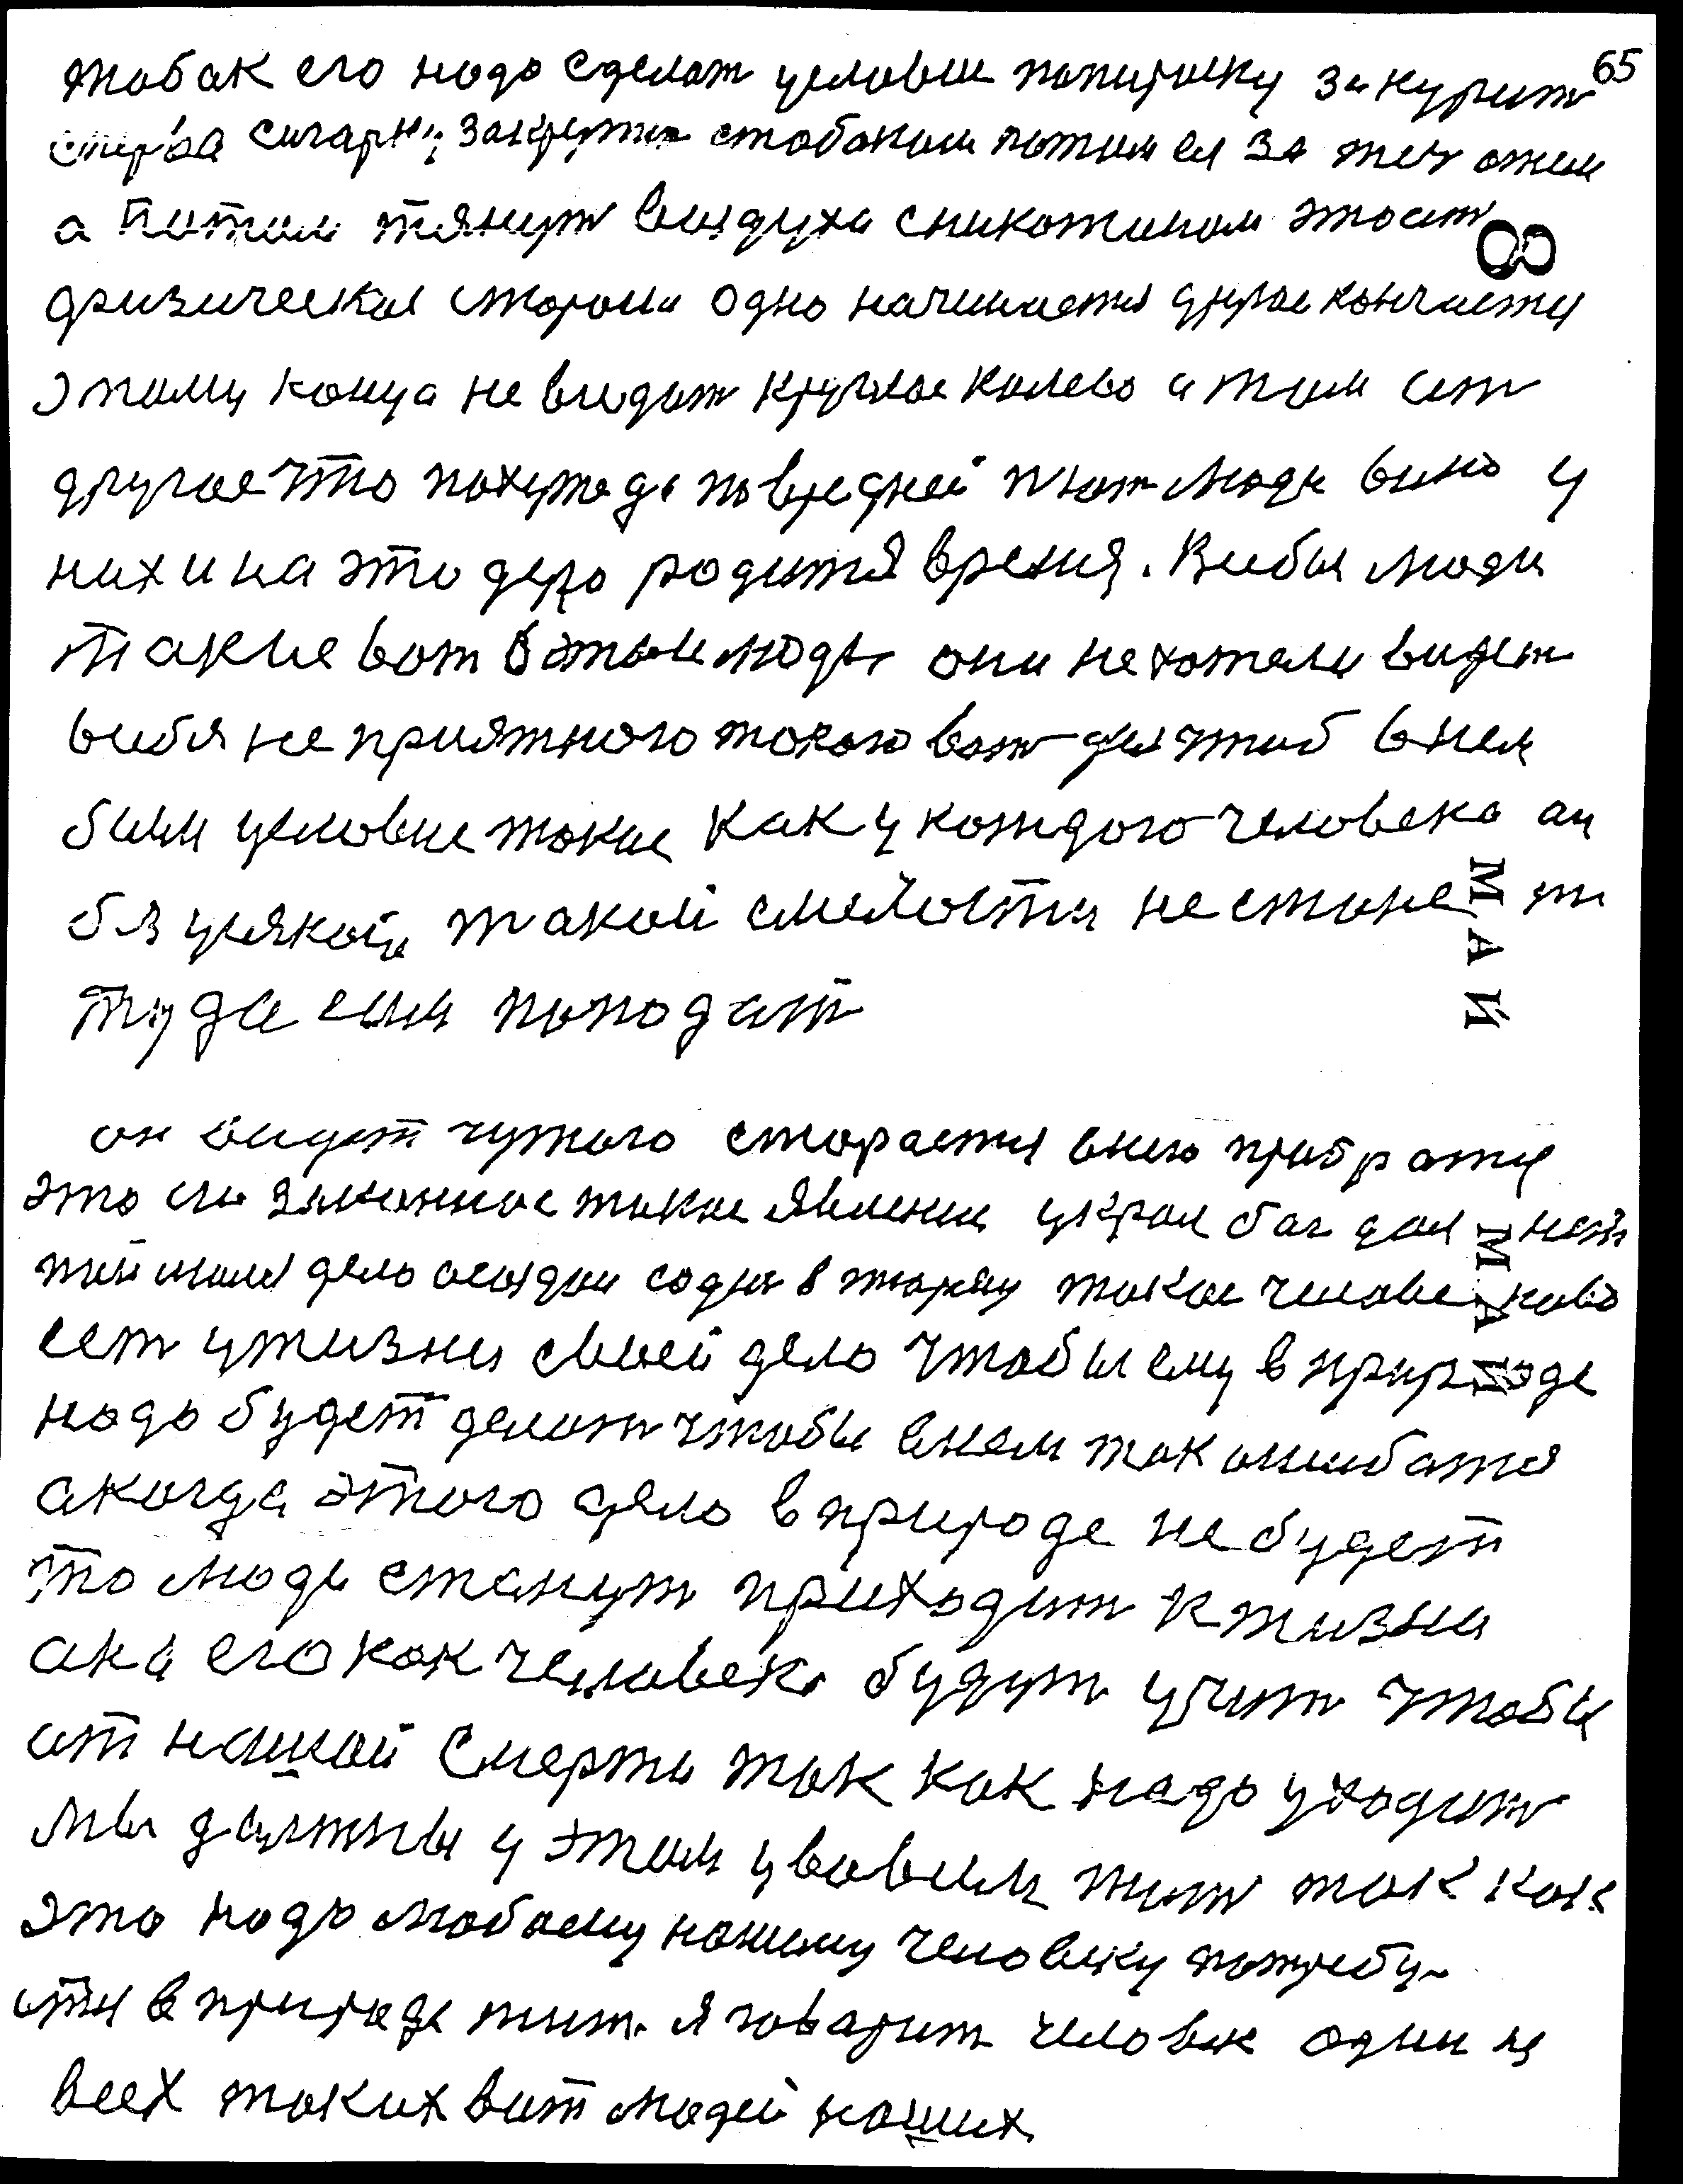 65
табак его надо сделат условие попироску закурит
сперва сигарку закрутит стабаком потом ея за жеч огнем
а потом тянут воздуха сникотином это ест
физическая сторона одно начинается другое кончается
этому конца не видат круглое колесо а там ест
другое что похуже да повредней пют люди вино у
них и на это дело родится время. Вибы люди
такие вот этаи люди они не хотели видет
вибя не приятного такого вот для чтоб внем
были условие такие как у каждого человека ан
бя усякой такой смелости не стане т
туда еши пападат
8
МАЙ
он видет чужого старается внего прибратся
это ены законное такое явление украл бог дал нет
поймался дело осядом содят в тюрму такое человеково
ест ужизни своей дело чтобы ему в природе
надо будет делат чтобы внем так ошибатся
акогда этого дело в природе не будет
то люди станут приходит к жизни
ана его как человека будут учит чтобы
ат нашой смерти так как надо уходит
мы должны у этом условием жит так как
это надо любому нашему человеку потребу-
ется в природе жит. я говарит человек один из
всех таких вот людей наших
МАЙ